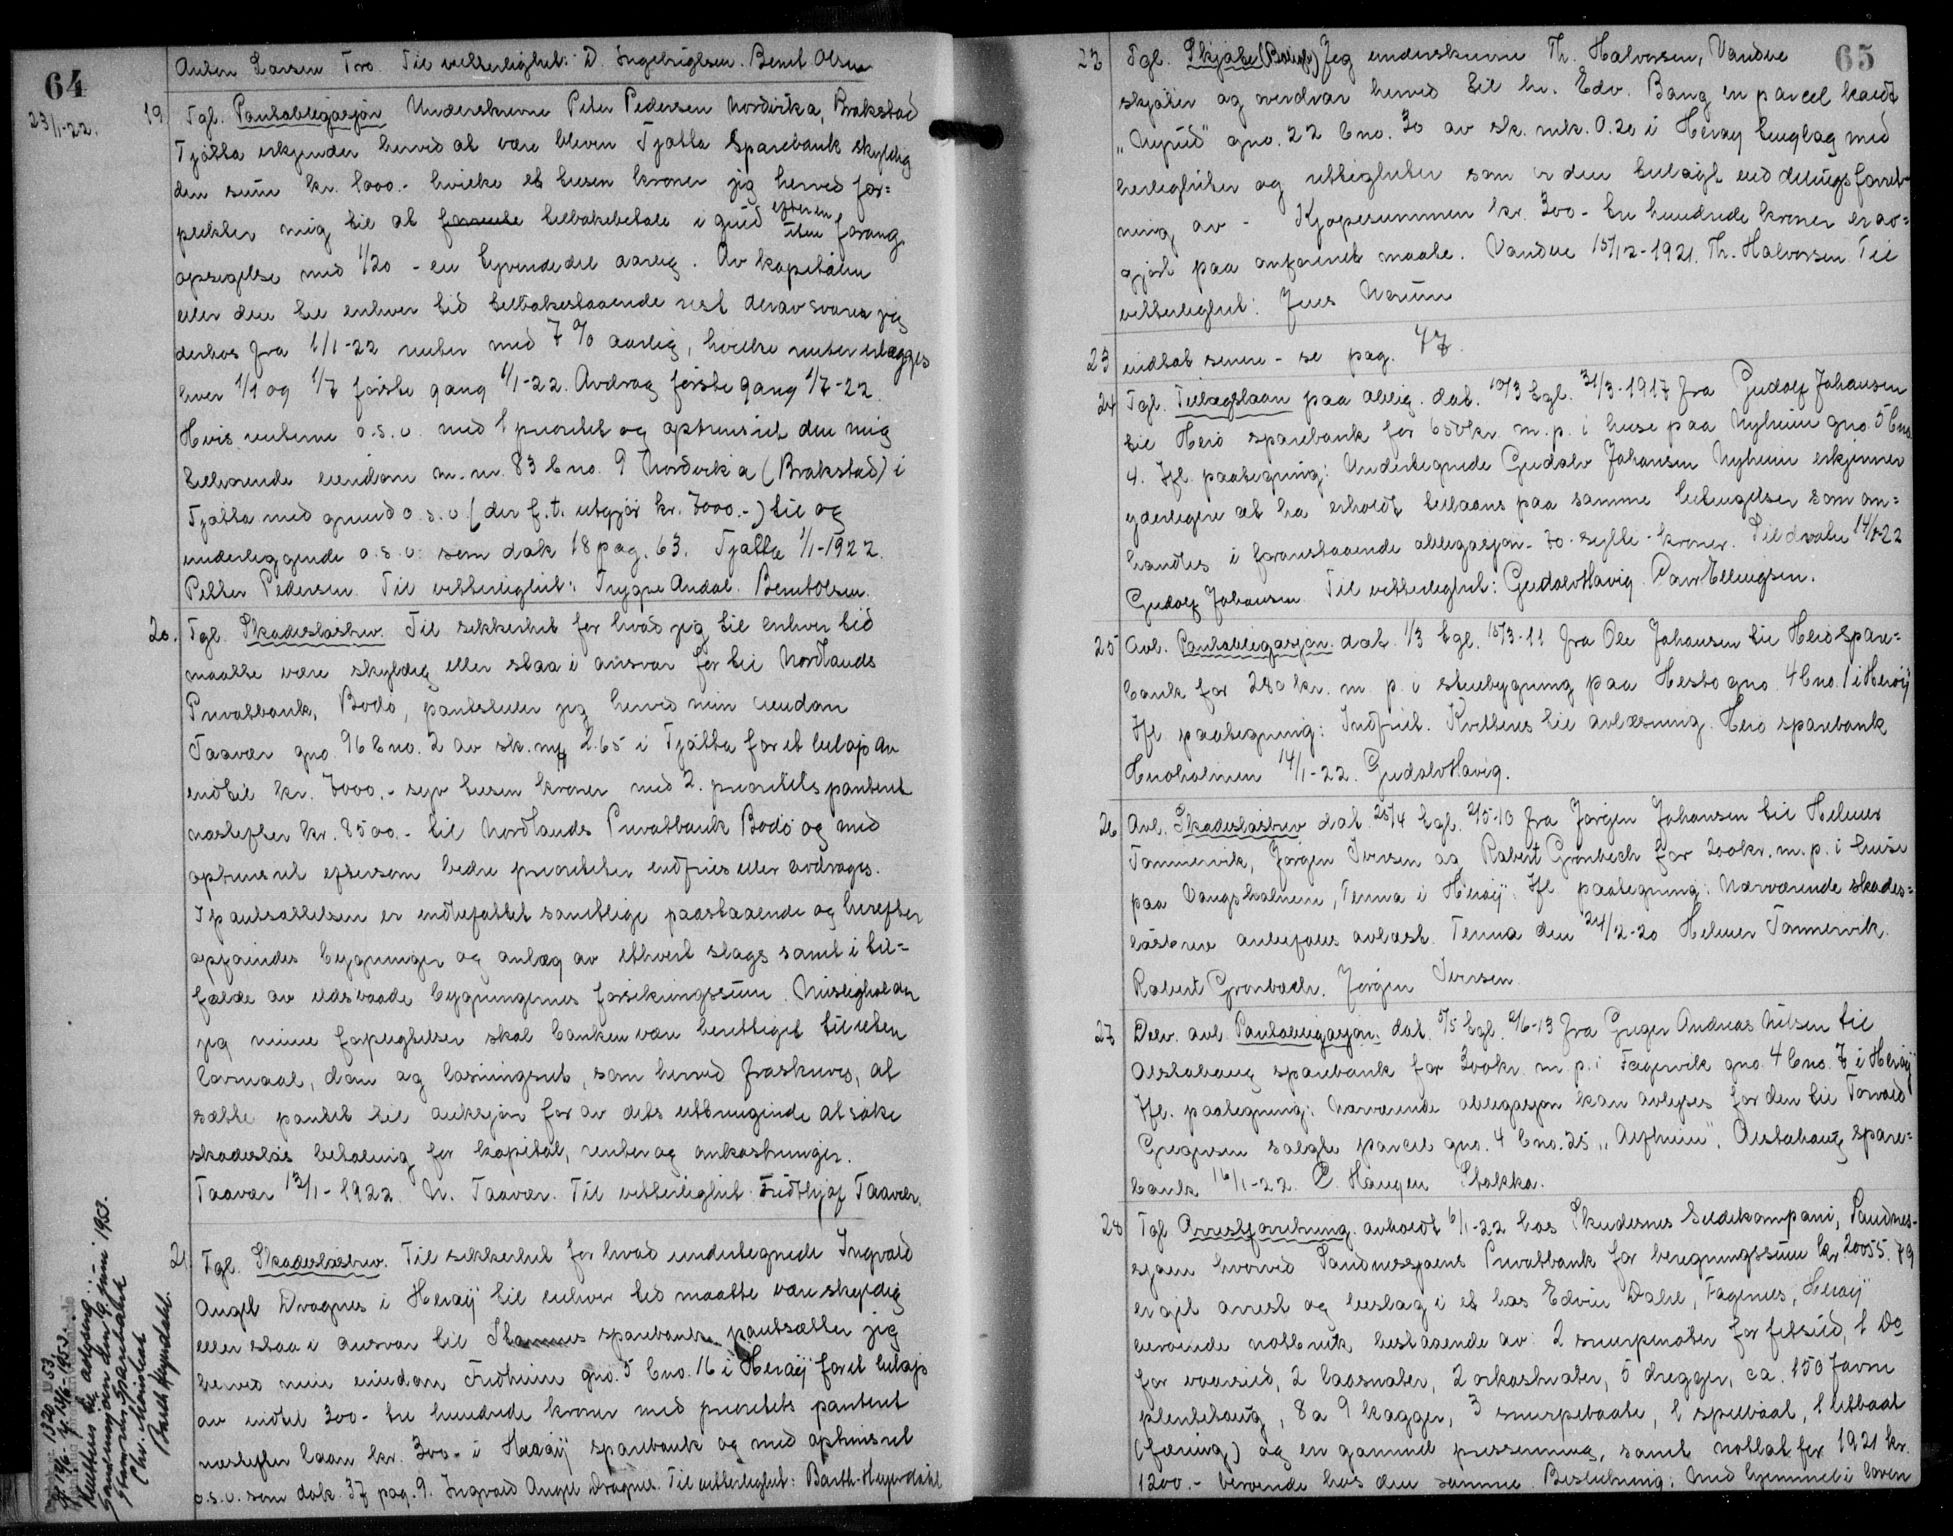 64
Anton Larsen Tro. Til vitterlighet: D. Ingebrigtsen. Bernt Olsen
23/1-22.
19 Tgl. Pantobligasjon Underskrevne Peter Pedersen Nordvika, Brakstad
Tjøtta erkjender herved at være bleven Tjøtta Sparebank skyldig
den sum kr. 1000.- hvilke et tusen kroner jeg herved for=
pligter mig til at forrente tilbakebetale i guld efter en uten forang.
opsigelse med 1/20 - en tyvendedel aarlig. Av kapitalen
eller den til enhver tid tilbakestaaende rest derav svarer jeg
derhos fra 1/1-22 renter med 7 % aarlig, hvilke renter erlægges
hver 1/1 og 1/7 første gang 1/1-22. Avdrag første gang 1/7-22.
Hvis renterne o.s.v. med 1 prioritet og optrinsret den mig
tilhørende eiendom m.m. 83 bno. 9 Nordvika (Brakstad) i
Tjøtta med grund o.s.v. (der f.t. utgjør kr. 7000.-) til og
underliggende o.s.v. som dok 18 pag. 63. Tjøtta 1/1-1922.
Petter Pedersen. Til vitterlighet: Trygve Andal. Bernt Olsen.
20. Tgl. Skadesløsbrev. Til sikkerhet for hvad jeg til enhver tid
maatte være skyldig eller staa i ansvar for til Nordlands
Privatbank, Bodø, pantsetter jeg herved min eiendom
Taavær gno. 96 bno. 2 av sk. mrk 2.65 i Tjøtta for et beløp av
indtil kr. 7000.- syv tusen kroner med 2. prioritets panteret
næstefter kr. 8500.- til Nordlands Privatbank Bodø og med
optrinsret eftersom bedre prioriteter indfries eller avdrages.
I pantsættelsen er indbefattet samtlige paastaaende og herefter
opførendes bygninger og anlæg av ethvert slags samt i til=
fælde av ildsvaade bygningernes forsikringssum. Misligholder
jeg mine forpligtelser skal banken være berettiget til uten
lovmaal, dom og løsningsret, som herved fraskrives, at
sætte pantet til auksjon for av dets utbringende at søke
skadesløs betaling for kapital, renter og omkostninger.
Taavær 12/1-1922. N. Taavær. Til vitterlighet Fridthjof Taavær.
21 Tgl. Skadesløsbrev. Til sikkerhet for hvad undertegnede Ingvald
Angel Dragnes i Herøy til enhver tid maatte være skyldig
eller staa i ansvar til Stamnes sparebank pantsætter jeg
herved min eiendom Fridheim gno. 5 bno. 16 i Herøy for et beløp
av indtil 300- tre hundrede kroner med prioritets panteret
næstefter laan kr. 300- i Herøy sparebank og med optrinsret
o.s.v. som dok. 37 pag. 9. Ingvald Angel Dragnes. Til vitterlighet: Barth-Heyerdahl
1320 53
Kvitteres til avlysning:
Sandnessjøen den 9. juni 1953.
Stamnes Sparebank
Chr. Meinhardt
Barth Heyerdahl.
65
22 Tgl. Skjøte (Bolig) Jeg underskrevne Th. Halvorsen, Vandve
skjøter og overdrar herved til hr. Edv. Bang en parcel kaldt
"Nyrud" gno. 22 bno. 30 av sk. mrk. 0.20 i Herøy tinglag med
herligheter og uttigheter som er den tillagt ved delingsforret-
ning av - Kjøpesummen kr. 300- tre hundrede kroner er av=
gjort paa omforenet maate. Vandve 15/12-1921. Th. Halvorsen Til
vitterlighet: Jens Norum
23 indtat senere - se pag. 77.
24 Tgl. Tillægslaan paa oblig. dat. 10/3 tgl. 31/3-1917 fra Gudolf Johansen
til Herø sparebank for 650 kr. m. p. i huse paa Nyheim gno. 5 bno.
4. Ifl. paategning: Undertegnede Gudolv Johansen Nyheim erkjenner
yderligere at ha erholdt tillaans paa samme betingelser som om=
handles i foranstaaende obligasjon - 70 - sytti - kroner. Sildvalen 14/1-22
Gudolf Johansen Til vitterlighet: Gudolv Havig. Paul Ellingsen.
25 Avl. Pantobligasjon dat. 1/3 tgl. 15/3-11 fra Ole Johansen til Herø spare=
bank for 280 kr. m. p. i stuebygning paa Hestø gno. 4 bno. 1 i Herøy
Ifl. paategning: Indfriet. Kvitteres til avlæsning. Herø sparebank
Herøholmen 14/1-22. Gudolv Havig.
26 Avl. Skadesløsbrev dat. 25/4 tgl. 2/5-10 fra Jørgen Johansen til Helmer
Tommervik, Jørgen Iversen og Robert Grønbech for 200 kr. m. p. i huse
paa Vangsholmen, Tenna i Herøy. Ifl paategning: Nærværende skades=
løsbrev anbefales avlæst. Tenna den 21/12-20 Helmer Tommervik.
Robert Grønbech. Jørgen Iversen.
27 Delv. avl. Pantobligasjon. dat. 5/5 tgl. 2/6-13 fra Greger Andreas Nilsen til
Alstahaug sparebank for 300 kr. m. p. i Fagervik gno. 4 bno. 7 i Herøy
Ifl. paategning: Nærværende obligasjon kan avlyses for den til Torvald
Gregersen solgte parcel gno. 4 bno. 25 "Alfheim". Alstahaug spare=
bank 16/1-22. C. Haugen Stokka.
28 Tgl Arrestforretning avholdt 6/1-22 hos Skudesnes Sildekompani, Sandnes-
sjøen hvorved Sandnessjøens Privatbank for beregningssum kr 20055.79
er git arrest og beslag i et hos Edvin Dahl, Fagernes, Herøy
beroende notbruk bestaaende av: 2 snurpenøter for fetsild, 1 Do
for vaarsild, 2 laasnøter, 2 orkastnøter, 5 dregger, ca. 150 favne
plentehaug, 8 a 9 kagger, 3 snurpebaate, 1 spilbaat, 1 letbaat
(færing) og en gammel presenning, samt notlot for 1921 kr.
1200.- beroende hos den samme. Beslutning: Med hjemmel i loven